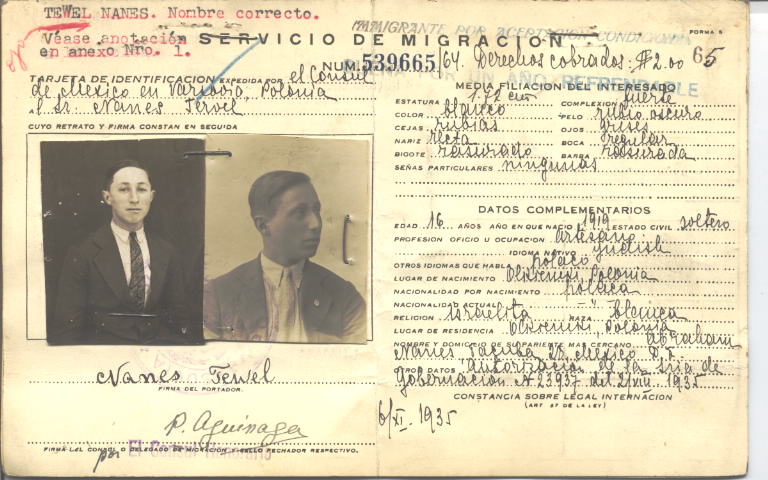 TEWEL NANES. Nombre correcto.
Véase anotación
en anexo Nro. 1.
SERVICIO DE MIGRACION
FORMA 5
NUM. 539665/64. Derechos cobrados: $2.00 65
REFRENDABLE
TARJETA DE IDENTIFICACION EXPEDIDA POR el Consul
de Mexico en Varsovia, Polonia
al sr. Nanes Tewel
CUYO RETRATO Y FIRMA CONSTAN EN SEGUIDA
Nanes Tewel
FIRMA DEL PORTADOR.
P. Aguinaga
FIRMA DEL CONSUL O DELEGADO DE MIGRACION Y SELLO FECHADOR RESPECTIVO.
por El Consul Honorario
MEDIA FILIACION DEL INTERESADO
ESTATURA 172 cm COMPLEXION fuerte
COLOR blanco PELO rubio oscuro
CEJAS rubias OJOS grises
NARIZ recta BOCA regular
BIGOTE rasurado BARBA rasurada
SEÑAS PARTICULARES ningunas
DATOS COMPLEMENTARIOS
EDAD 16 AÑOS AÑO EN QUE NACIO 1919 ESTADO CIVIL soltero
PROFESION OFICIO U OCUPACION artesano
IDIOMA NATIVO yudish
OTROS IDIOMAS QUE HABLA polaco
LUGAR DE NACIMIENTO Polonia
NACIONALIDAD POR NACIMIENTO polaca
NACIONALIDAD ACTUAL - " -
RELIGION israelita RAZA blanca
LUGAR DE RESIDENCIA Polonia
NOMBRE Y DOMICILIO DE SU PARIENTE MAS CERCANO Abraham
Nanes, Tacuba 28, Mexico D. F.
OTROS DATOS Autorización de la Sria de
Gobernación N 23937 del 21 VIII. 1935
CONSTANCIA SOBRE LEGAL INTERNACION
(ART 57 DE LA LEY)
6/XI. 1935